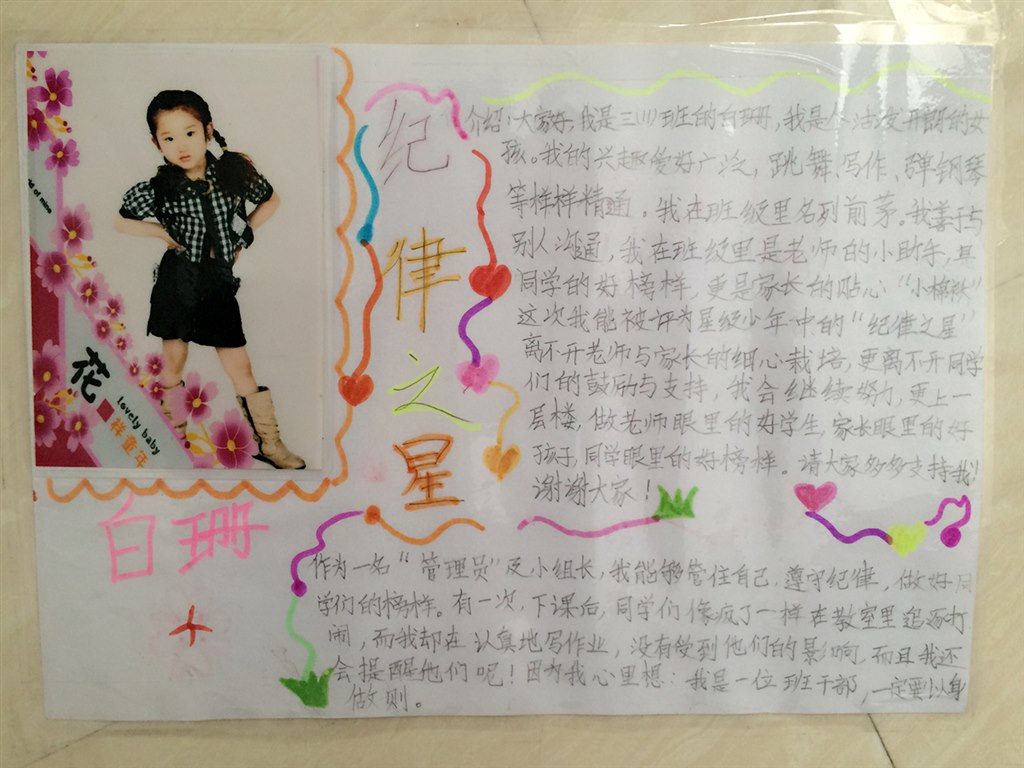 纪律之星
介绍:大家好,我是三(1)班的白珊,我是个活泼开朗的女
孩。我的兴趣爱好广泛,跳舞、写作、弹钢琴
等样样精通。我在班级里名列前茅。我善于与
别人沟通,我在班级里是老师的小助手,是
同学的好榜样,更是家长的贴心“小棉袄”
这次我能被评为星级少年中的“纪律之星”
离不开老师与家长的细心栽培,更离不开同学
们的鼓励与支持,我会继续努力,更上一
层楼,做老师眼里的好学生,家长眼里的好
孩子,同学眼里的好榜样。请大家多多支持我!
谢谢大家!
花
样童年
Lovely baby
白珊
作为一名“管理员”及小组长,我能够管住自己,遵守纪律,做好同
学们的榜样。有一次,下课后,同学们像疯了一样在教室里追逐打
闹,而我却在认真地写作业,没有受到他们的影响,而且我还
会提醒他们呢!因为我心里想:我是一位班干部,一定要以身
做则。